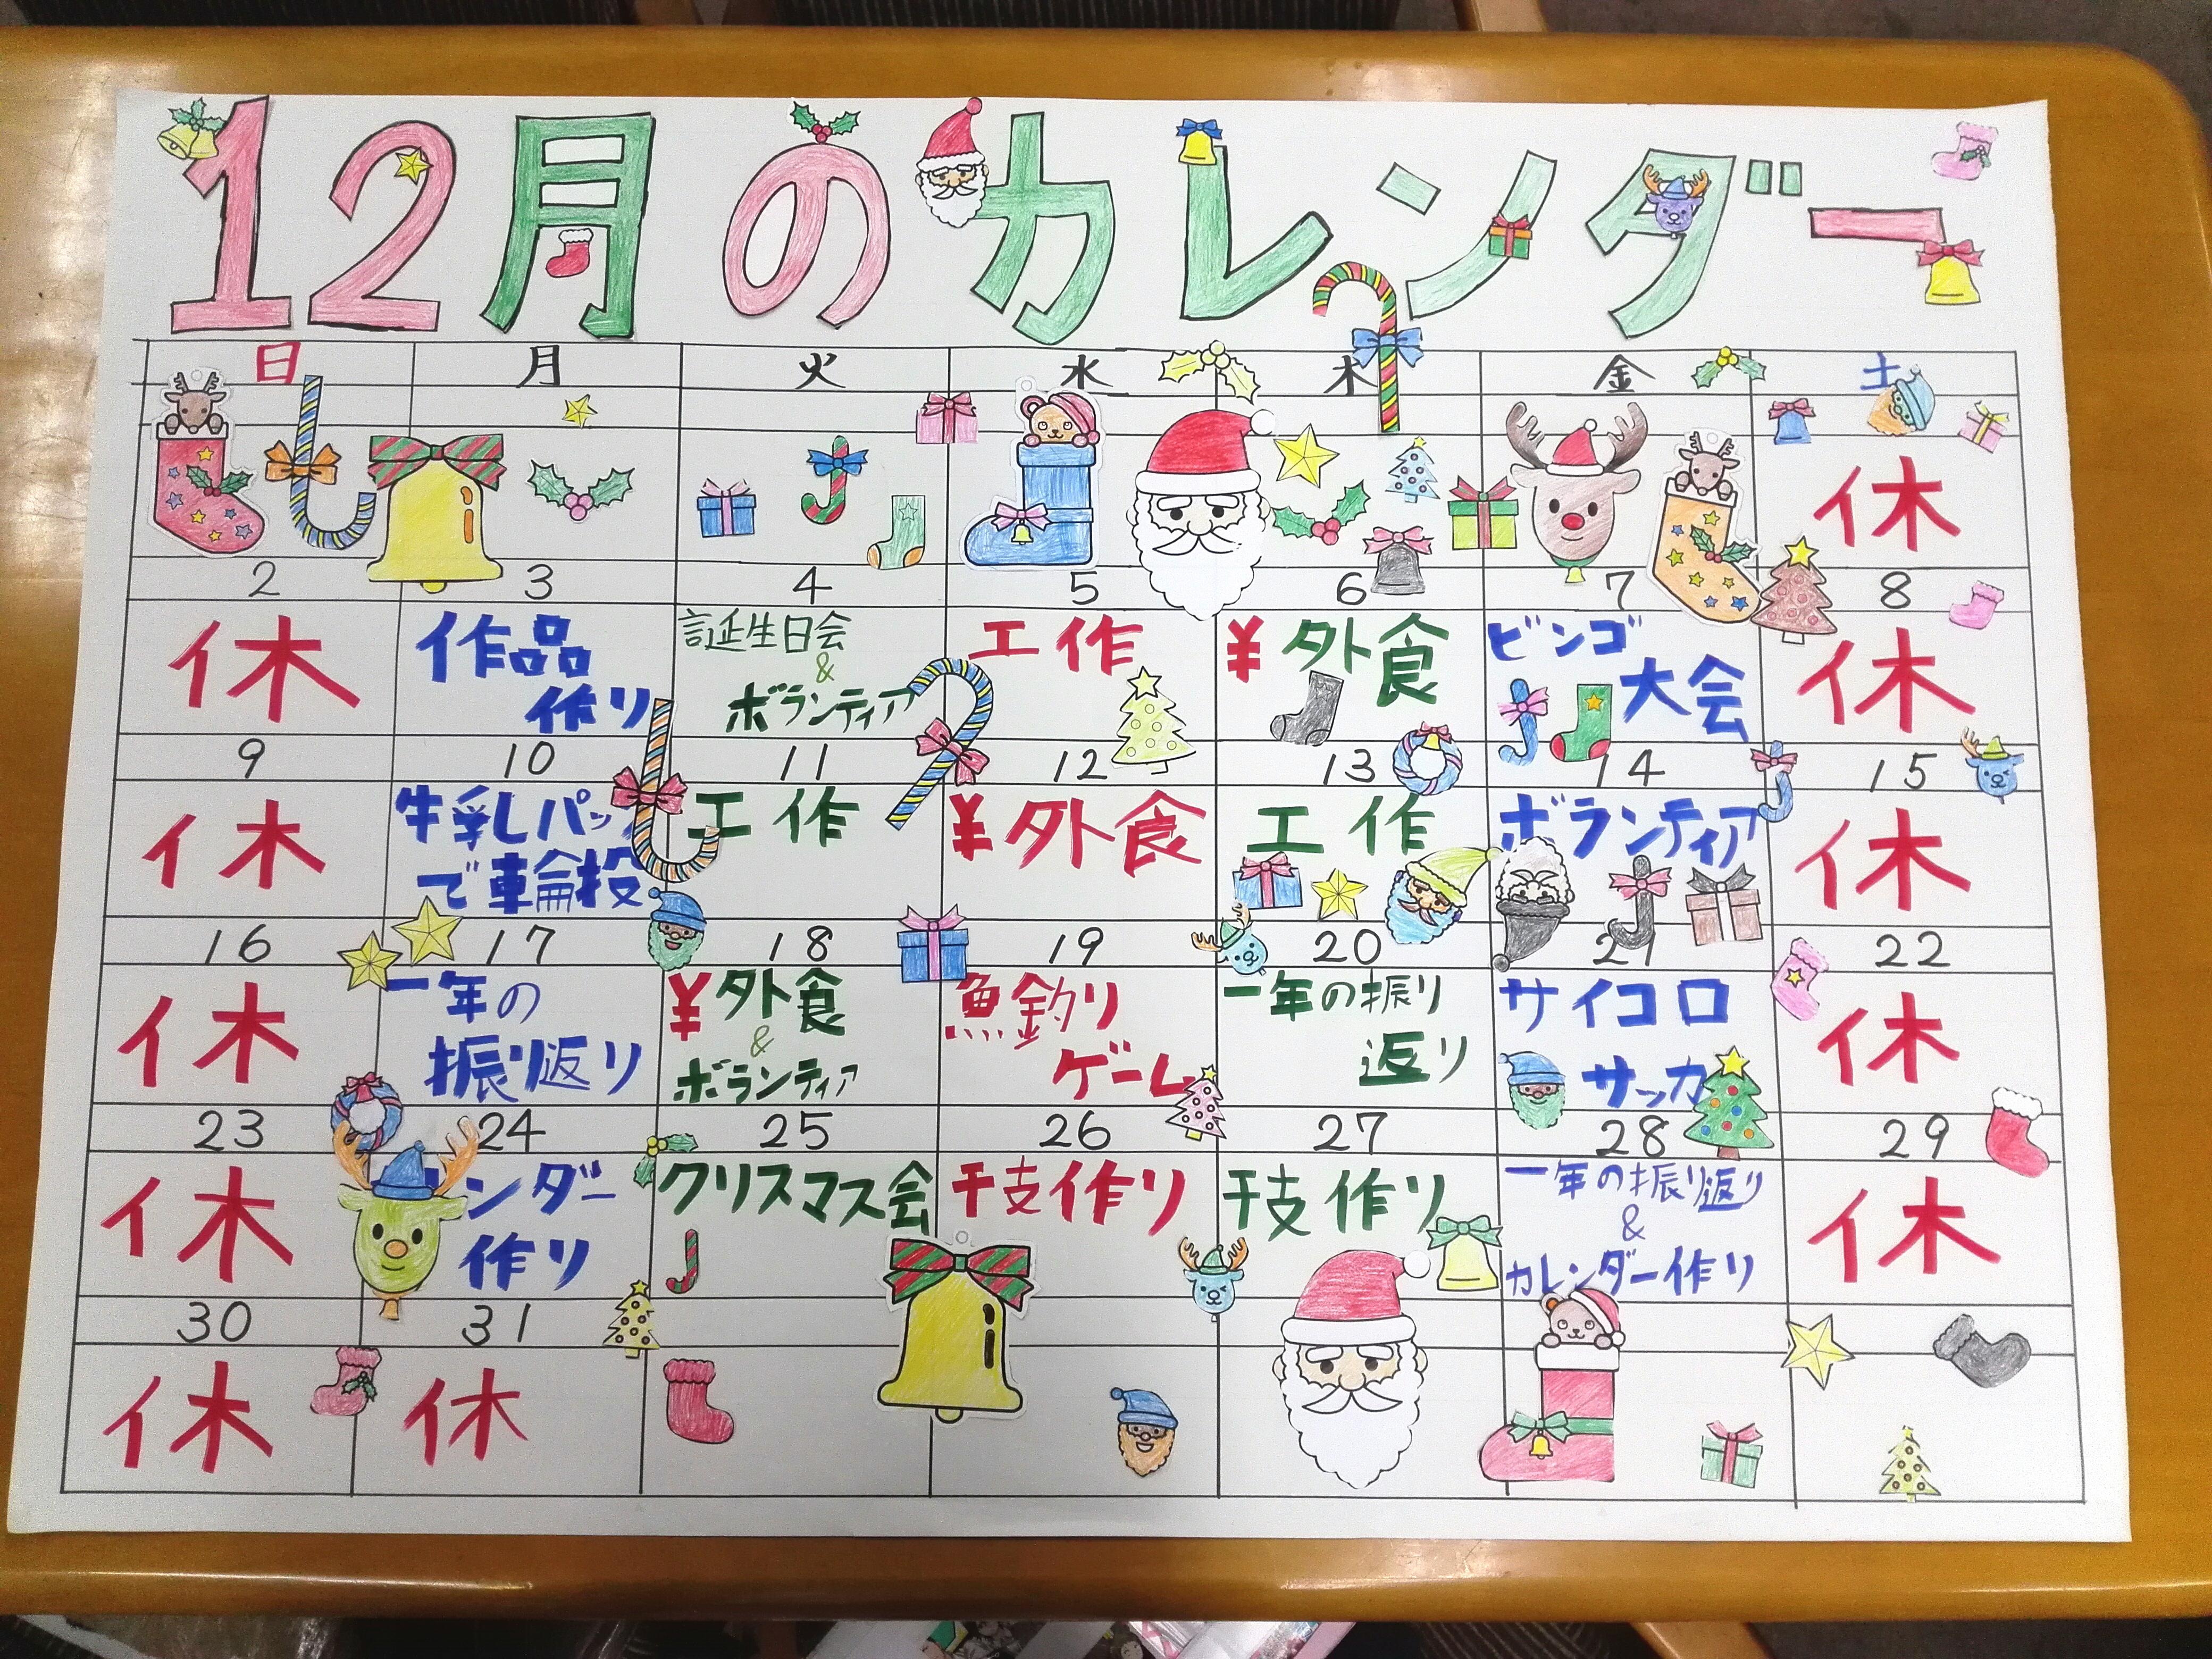 12月のカレンダー
日 月 火 水 木 金 土
休
2 3 4 5 6 7 8
休
作品
作り
誕生日会
&
ボランティア
工作
¥外食
ビンゴ
大会
休
9 10 11 12 13 14 15
休
牛乳しパック
で車輪投
工作
¥外食
工作
ボランティア
休
16 17 18 19 20 21 22
休
一年の
振り返り
¥外食
&
ボランティア
魚釣り
ゲーム
一年の振り
返り
サイコロ
サッカ
休
23 24 25 26 27 28 29
休
ンダー
作り
クリスマス会
干支作り
干支作り
一年の振り返り
&
カレンダー作り
休
30 31
休
休